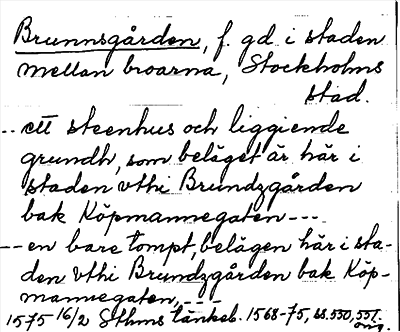 Brunnsgården, f. gd. i staden
mellan broarna, Stockholms
stad.
-- ett steenhus och liggiende
grundh, som beläget är här i
staden vthi Brundzgården
bak Köpmannegaten ---
-- en bare tompt, belägen här i sta-
den vthi Brundzgården bak Köp-
mannegaten, ---
1575 16/2 Sthms tänkeb. 1568-75, ss. 550, 551.
orig.